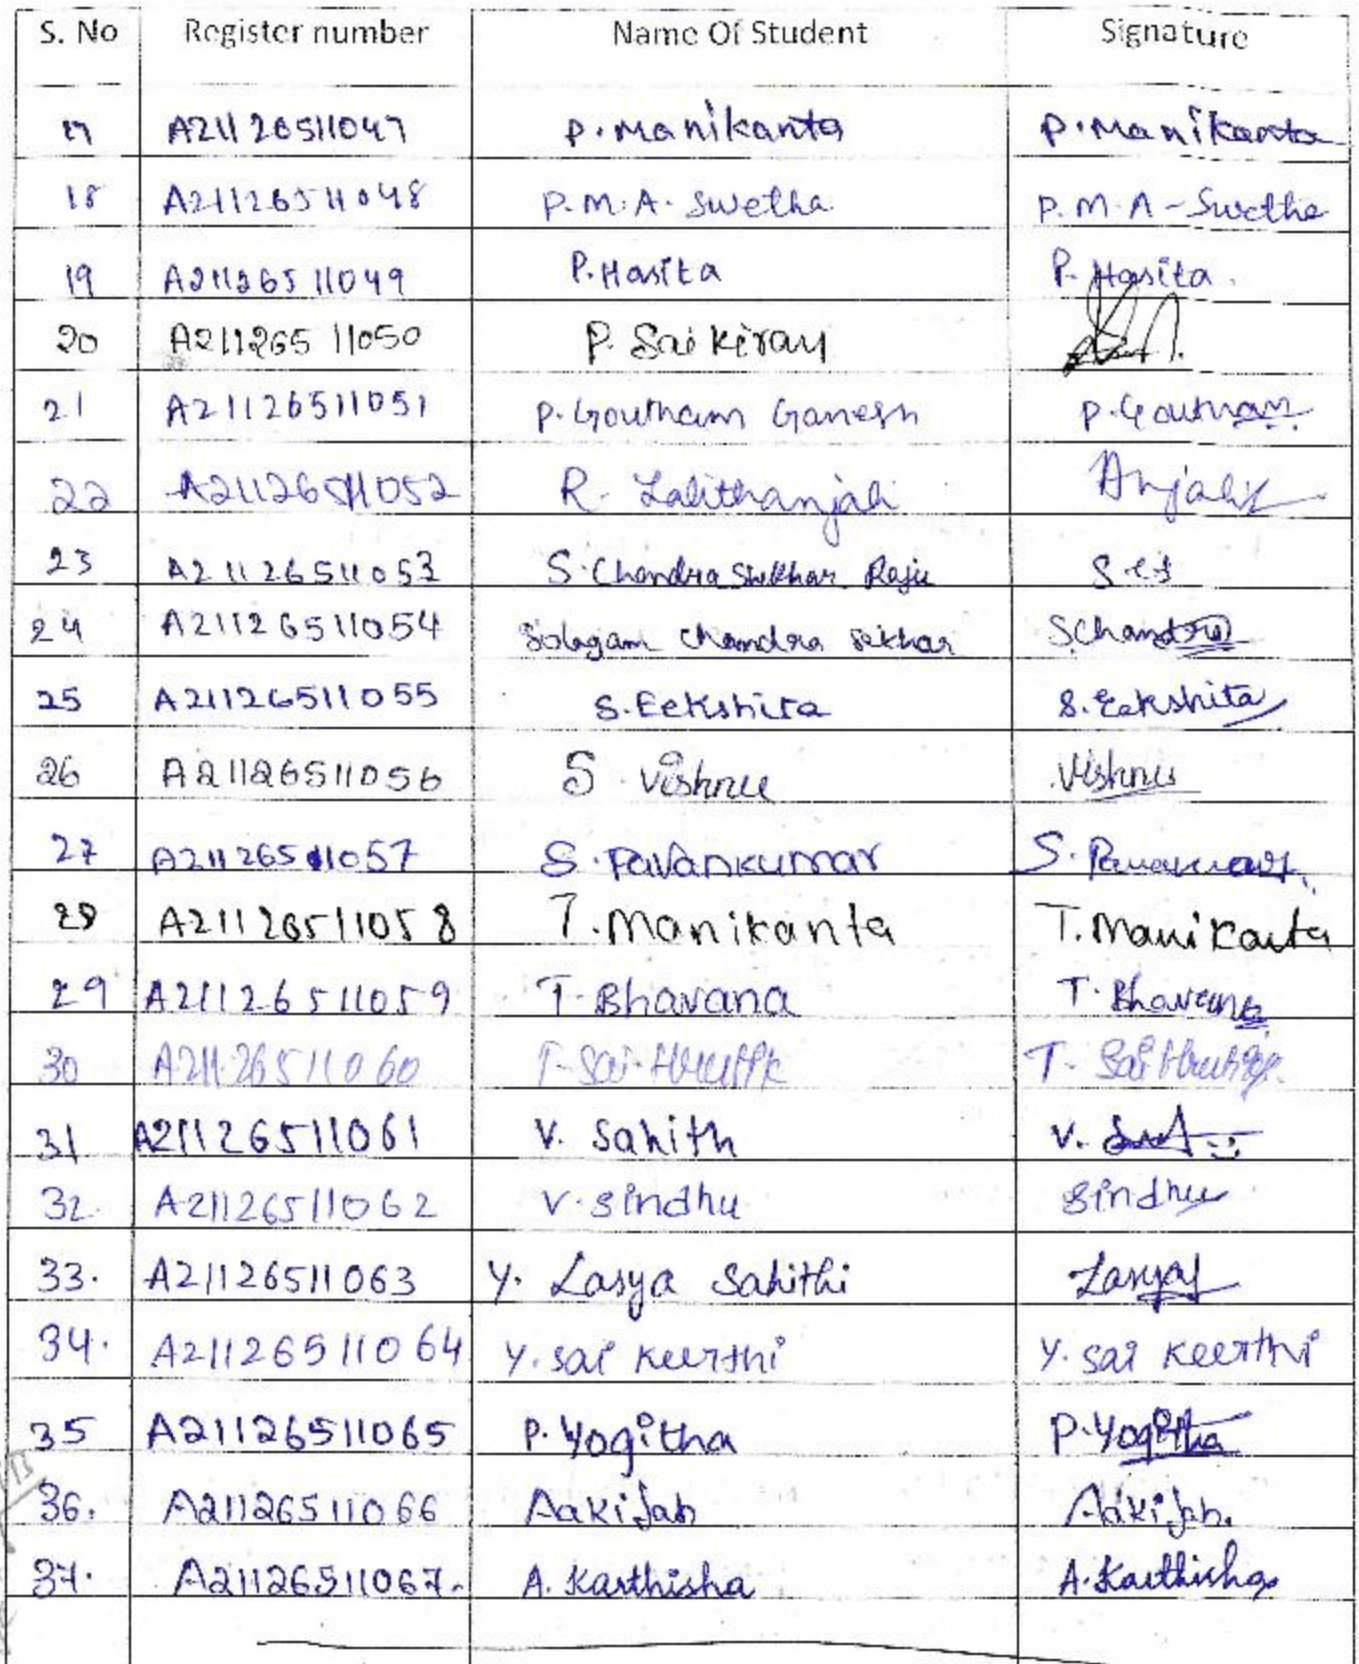 S. No Register number Name Of Student Signature
17 A21126511047 P. Manikanta P. Manikanta
18 A21126511048 P.M.A. Swetha P.M.A-Swetha
19 A21126511049 P. Hasita P. Hasita.
20 A21126511050 P. Sai Kiran
21 A21126511051 P. Goutham Ganesh P. Goutham
22 A21126511052 R. Lalithanjali Anjali
23 A21126511053 S. Chandra Sekhar Raju
24 A21126511054 Solagam Chandra Sekhar SChandra
25 A21126511055 S. Eekshita S. Eekshita
26 A21126511056 S. Vishnu Vishnu
27 A21126511057 S. Pavankumar S.
28 A21126511058 T. Manikanta T. Manikanta
29 A21126511059 T. Bhavana T. Bhavana
30 A21126511060 T. Sai T. Sai
31 A21126511061 V. Sahith V.
32 A21126511062 V. Sindhu Sindhu
33. A21126511063 Y. Lasya Sahithi Lasya
34. A21126511064 Y. Sai Keerthi Y. Sai Keerthi
35 A21126511065 P. Yogitha P. Yogitha
36. A21126511066 Aakifah Aakifah.
37. A21126511067. A. Karthisha A. Karthisha